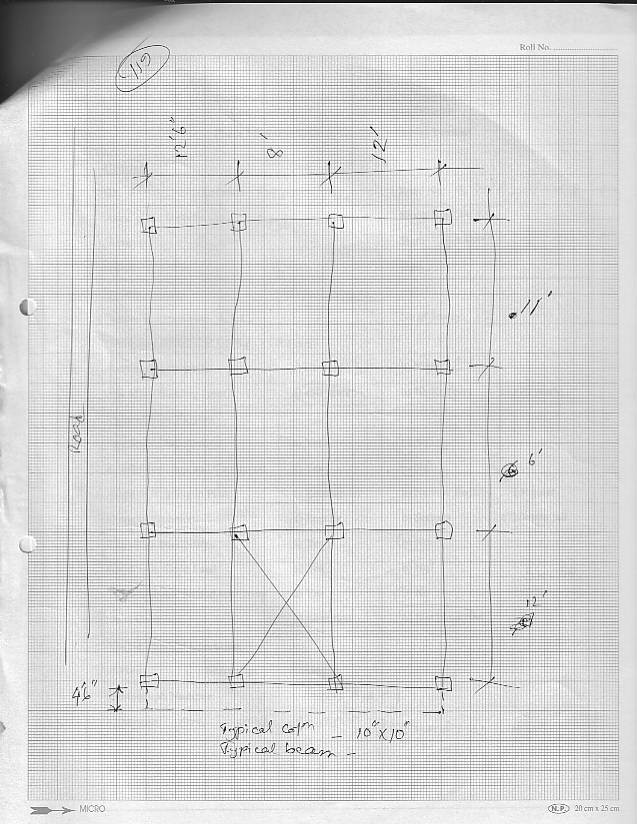 Roll No.
119
12'6" 8' 12'
11'
Road
6'
12'
4'6"
Typical colm - 10"x10"
Typical beam -
MICRO
N.P. 20 cm x 25 cm